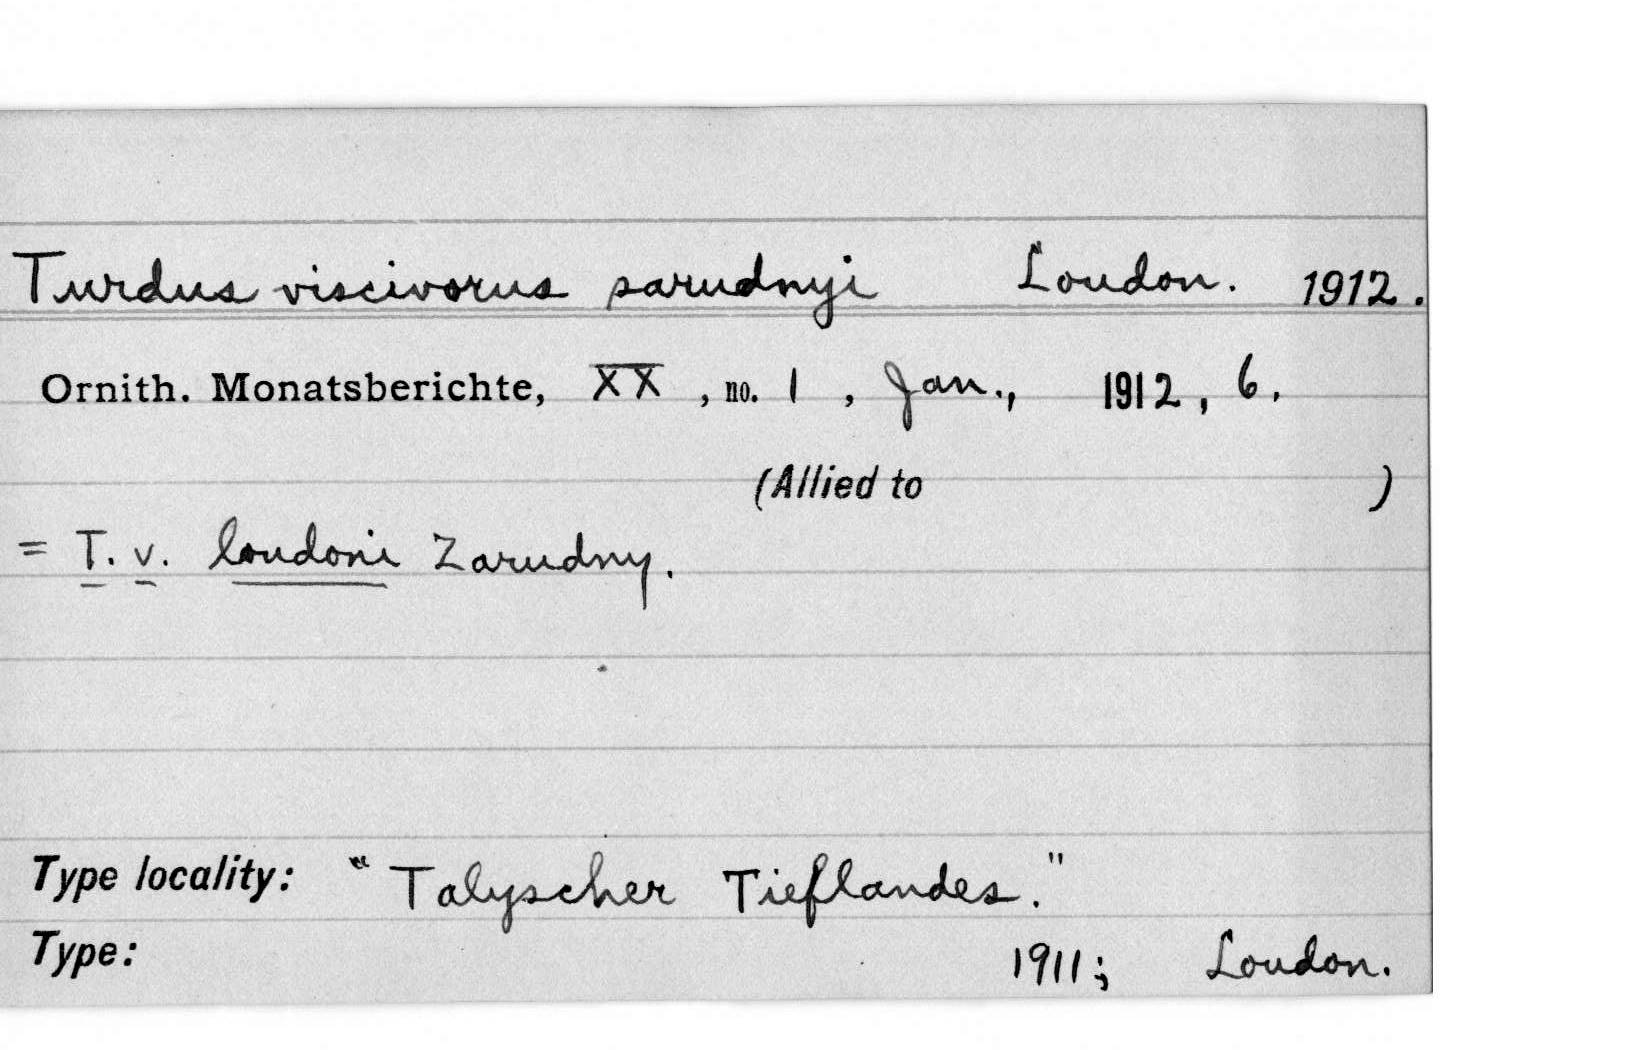 Turdus viscivorus sarudnyi Loudon. 1912.
Ornith. Monatsberichte, XX, no. 1, Jan., 1912, 6.
(Allied to )
= T. v. loudoni Zarudny.
Type locality: "Talyscher Tieflandes."
Type: 1911; Loudon.